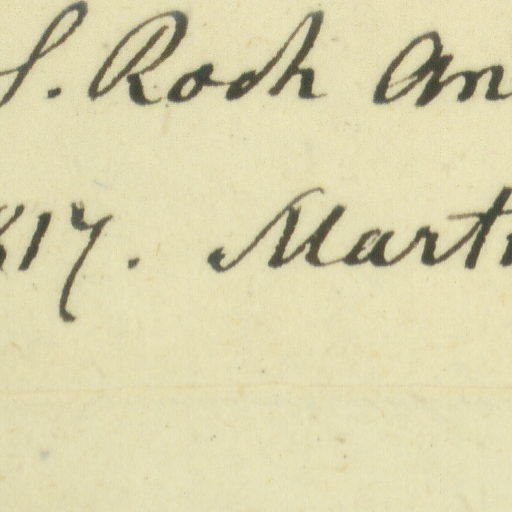 S. Roch An
817. Mart